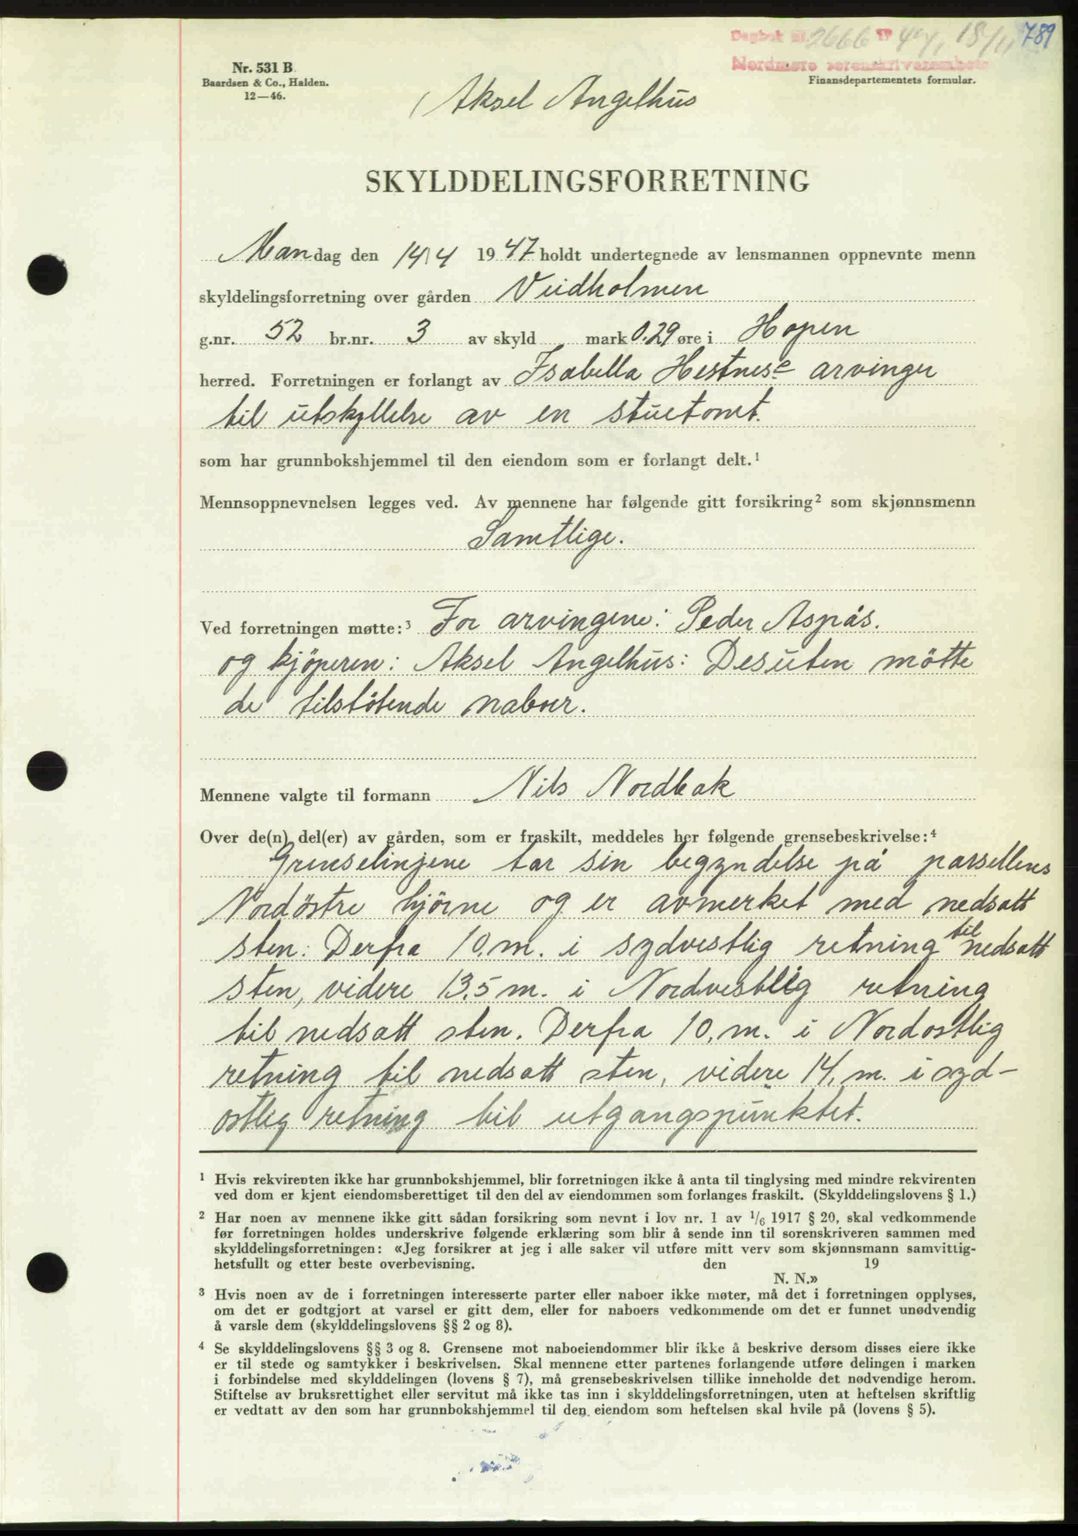 Dagbok nr. 2666 19 47, 18/11 789
Nordmøre sorenskriverembete
Nr. 531 B
Baardsen & Co., Halden.
12—46.
Finansdepartementets formular.
Aksel Angelhus
SKYLDDELINGSFORRETNING
Mandag den 14/4 1947 holdt undertegnede av lensmannen oppnevnte menn
skyldelingsforretning over gården Veidholmen
g.nr. 52 br.nr. 3 av skyld mark 0.29 øre i Hopen
herred. Forretningen er forlangt av Isabella Hestnes's arvinger
til utskyllelse av en stuetomt.
som har grunnbokshjemmel til den eiendom som er forlangt delt.¹
Mennsoppnevnelsen legges ved. Av mennene har følgende gitt forsikring² som skjønnsmenn
Samtlige.
Ved forretningen møtte:³ For arvingene: Peder Aspås.
og kjöperen: Aksel Angelhus: Desuten mötte
de tilstötende naboer.
Mennene valgte til formann Nils Nordbak
Over de(n) del(er) av gården, som er fraskilt, meddeles her følgende grensebeskrivelse:⁴
Grenselinjene tar sin begyndelse på parsellens
Nordöstre hjörne og er avmerket med nedsatt
sten: Derfra 10,m. i sydvestlig retning til nedsatt
sten, videre 13,5 m. i Nordvestlig retning
til nedsatt sten. Derfra 10,m. i Nordostlig
retning til nedsatt sten, videre 14,m. i syd-
ostlig retning til utgangspunktet.
¹ Hvis rekvirenten ikke har grunnbokshjemmel, blir forretningen ikke å anta til tinglysing med mindre rekvirenten
ved dom er kjent eiendomsberettiget til den del av eiendommen som forlanges fraskilt. (Skylddelingslovens § 1.)
² Har noen av mennene ikke gitt sådan forsikring som nevnt i lov nr. 1 av 1/6 1917 § 20, skal vedkommende
før forretningen holdes underskrive følgende erklæring som blir å sende inn til sorenskriveren sammen med
skylddelingsforretningen: «Jeg forsikrer at jeg i alle saker vil utføre mitt verv som skjønnsmann samvittig-
hetsfullt og etter beste overbevisning. den 19
N. N.»
³ Hvis noen av de i forretningen interesserte parter eller naboer ikke møter, må det i forretningen opplyses,
om det er godtgjort at varsel er gitt dem, eller for naboers vedkommende om det er funnet unødvendig
å varsle dem (skylddelingslovens §§ 2 og 8).
⁴ Se skylddelingslovens §§ 3 og 8. Grensene mot naboeiendommer blir ikke å beskrive dersom disses eiere ikke
er til stede og samtykker i beskrivelsen. Skal mennene etter partenes forlangende utføre delingen i marken
i forbindelse med skylddelingen (lovens § 7), må grensebeskrivelsen tillike inneholde det nødvendige herom.
Stiftelse av bruksrettighet eller servitut må ikke tas inn i skylddelingsforretningen, uten at heftelsen skriftlig
er vedtatt av den som har grunnbokshjemmel til den eiendom som heftelsen skal hvile på (lovens § 5).